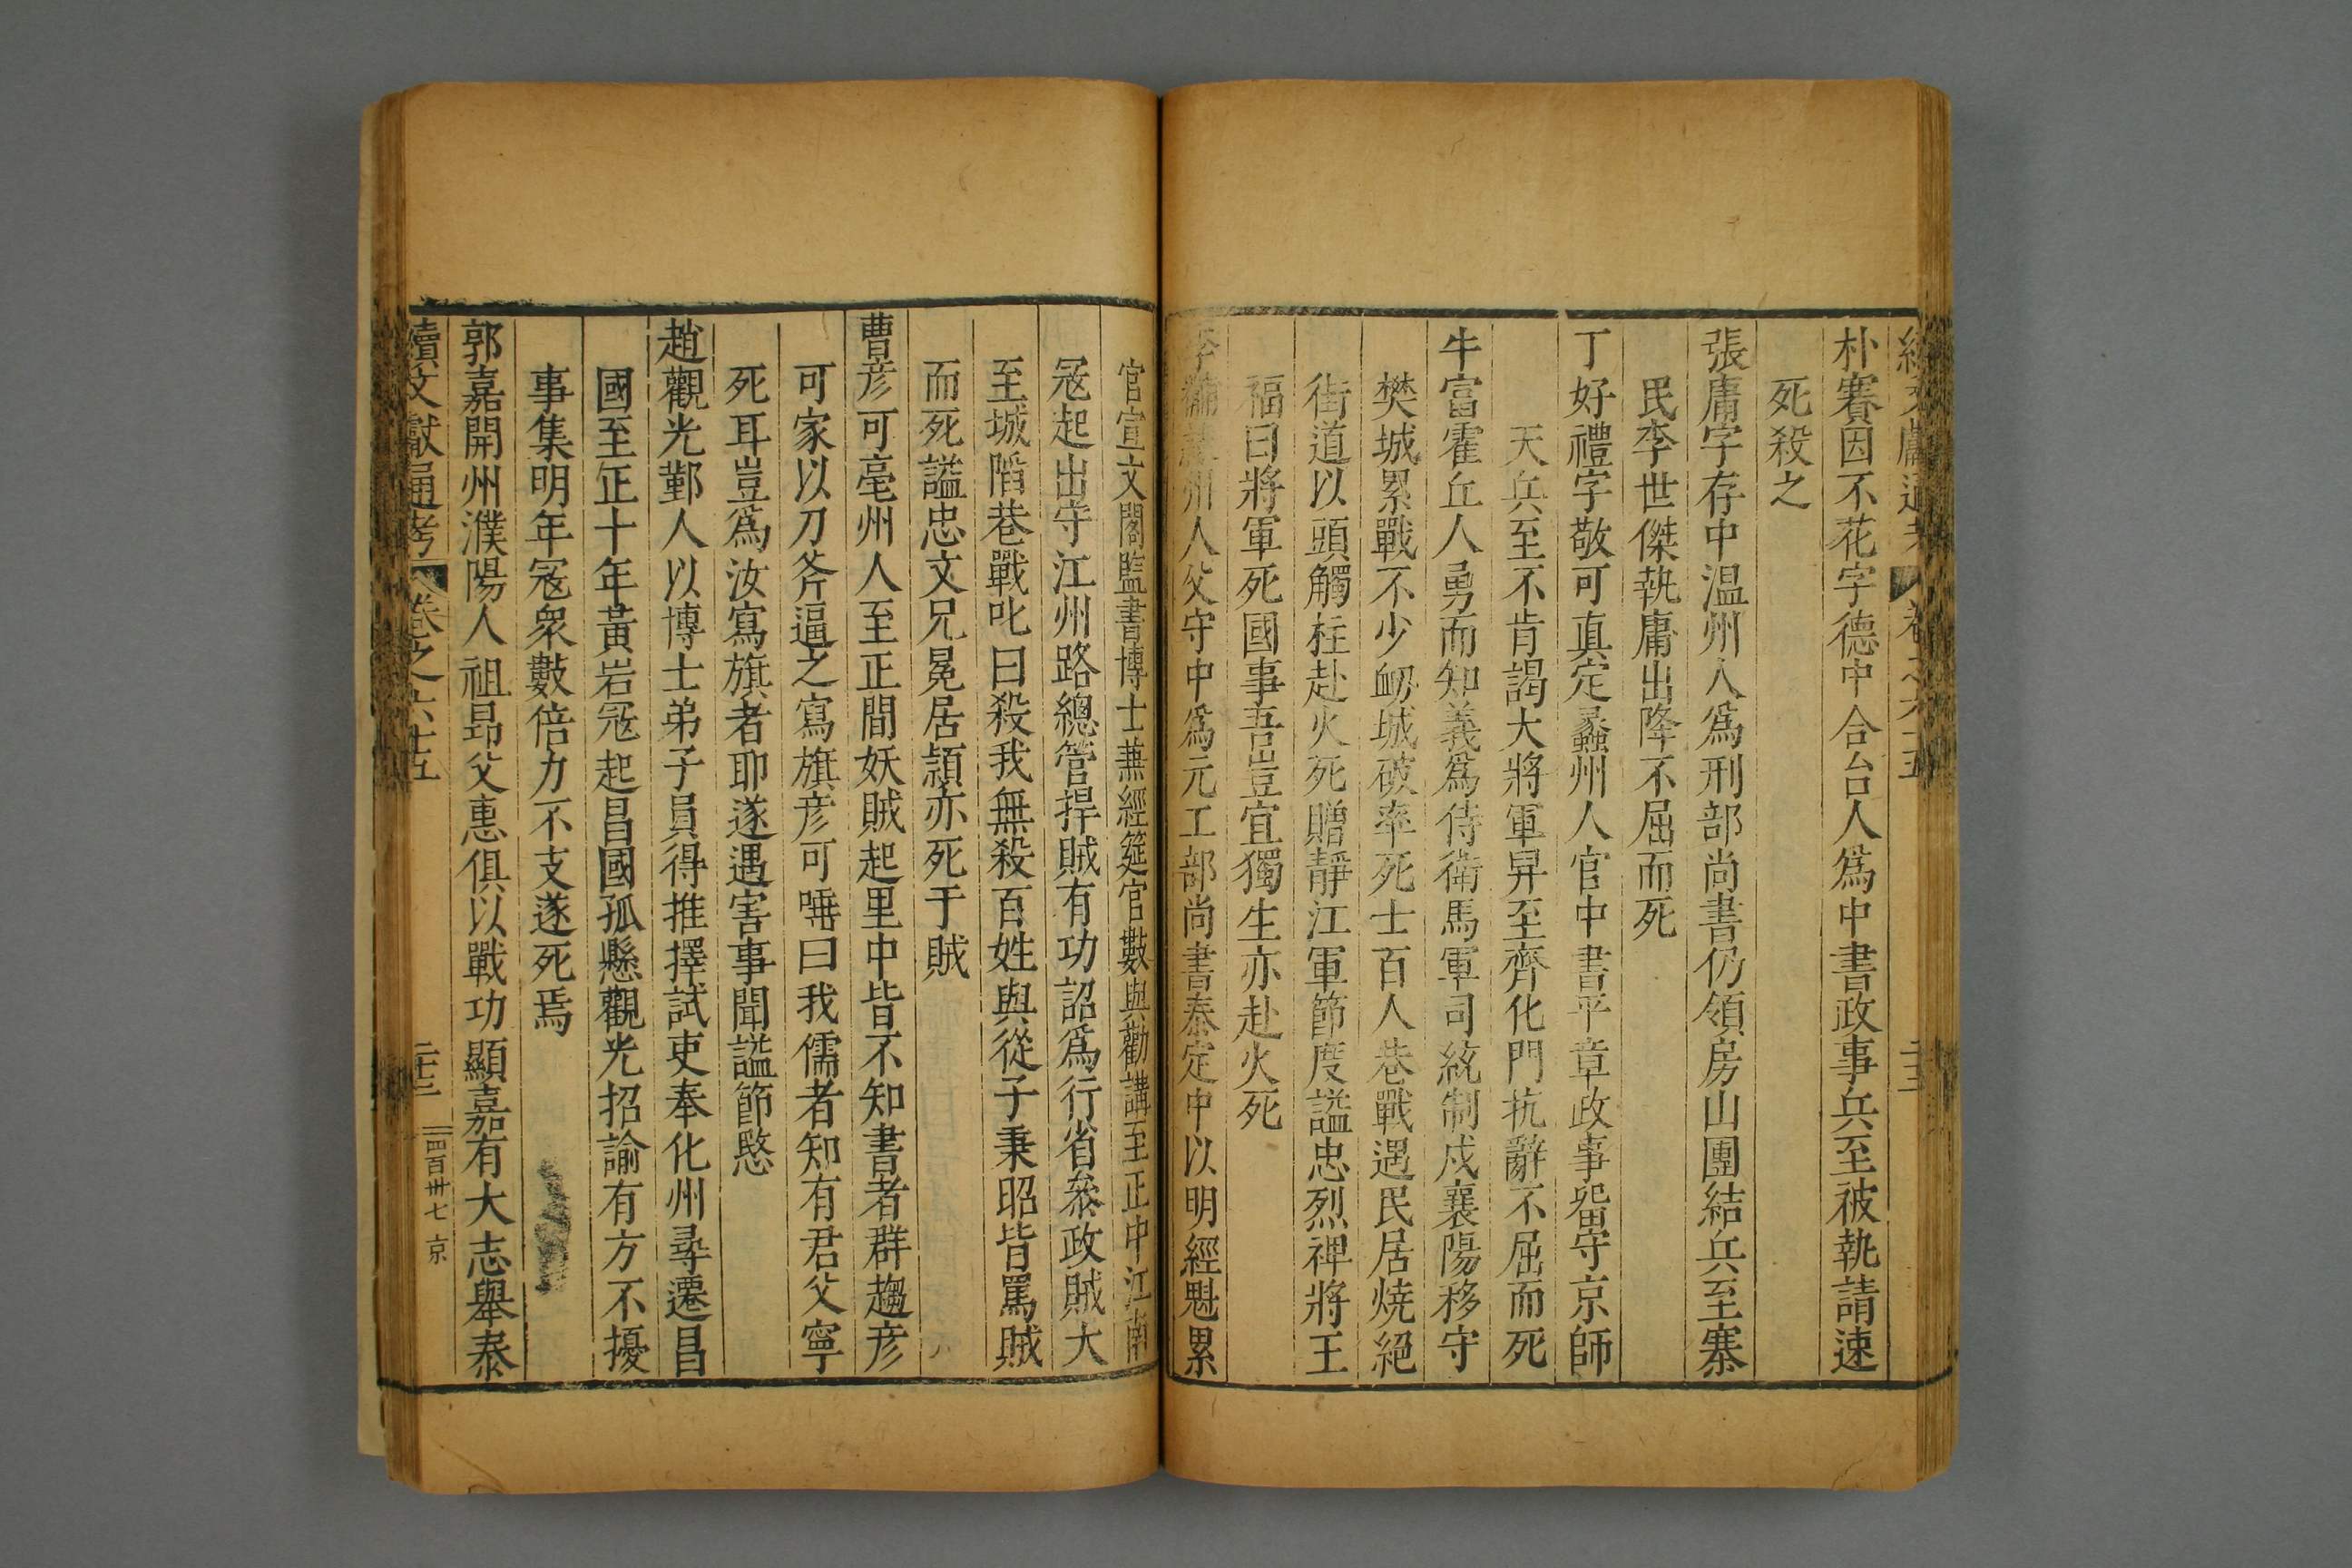 朴賽因不花字德中合台人爲中書政事兵至被執請速
死殺之
張庸字存中温州人爲刑部尚書仍領房山團結兵至寨
民李世傑執庸出降不屈而死
丁好禮字敬可真定蠡州人官中書平章政事畱守京師
天兵至不肯謁大將軍舁至齊化門抗辭不屈而死
牛富霍丘人勇而知義爲侍衛馬軍司統制戍襄陽移守
樊城累戰不少衂城破率死士百人巷戰遇民居焼絕
街道以頭觸柱赴火死贈靜江軍節度謚忠烈裨將王
福曰將軍死國事吾豈宜獨生亦赴火死
李黼 州人父守中爲元工部尚書泰定中以明經魁累
官宣文閣監書博士蕪經筵官數與勸講至正中江南
冦起出守江州路總管捍賊有功詔爲行省叅政賊大
至城陷巷戰叱曰殺我無殺百姓與從子秉昭皆罵賊
而死謚忠文兄冕居潁亦死于賊
曹彦可亳州人至正間妖賊起里中皆不知書者群趨彦
可家以刀斧逼之寫旗彦可唾曰我儒者知有君父寧
死耳豈爲汝寫旗者耶遂遇害事聞謚節愍
趙觀光鄞人以博士弟子員得推擇試吏奉化州尋遷昌
國至正十年黃岩冦起昌國孤懸觀光招諭有方不擾
事集明年冦衆數倍力不支遂死焉
郭嘉開州濮陽人祖昂父惠俱以戰功顯嘉有大志舉泰
續文獻通考 卷之六十五 二十三 四百卅七 京